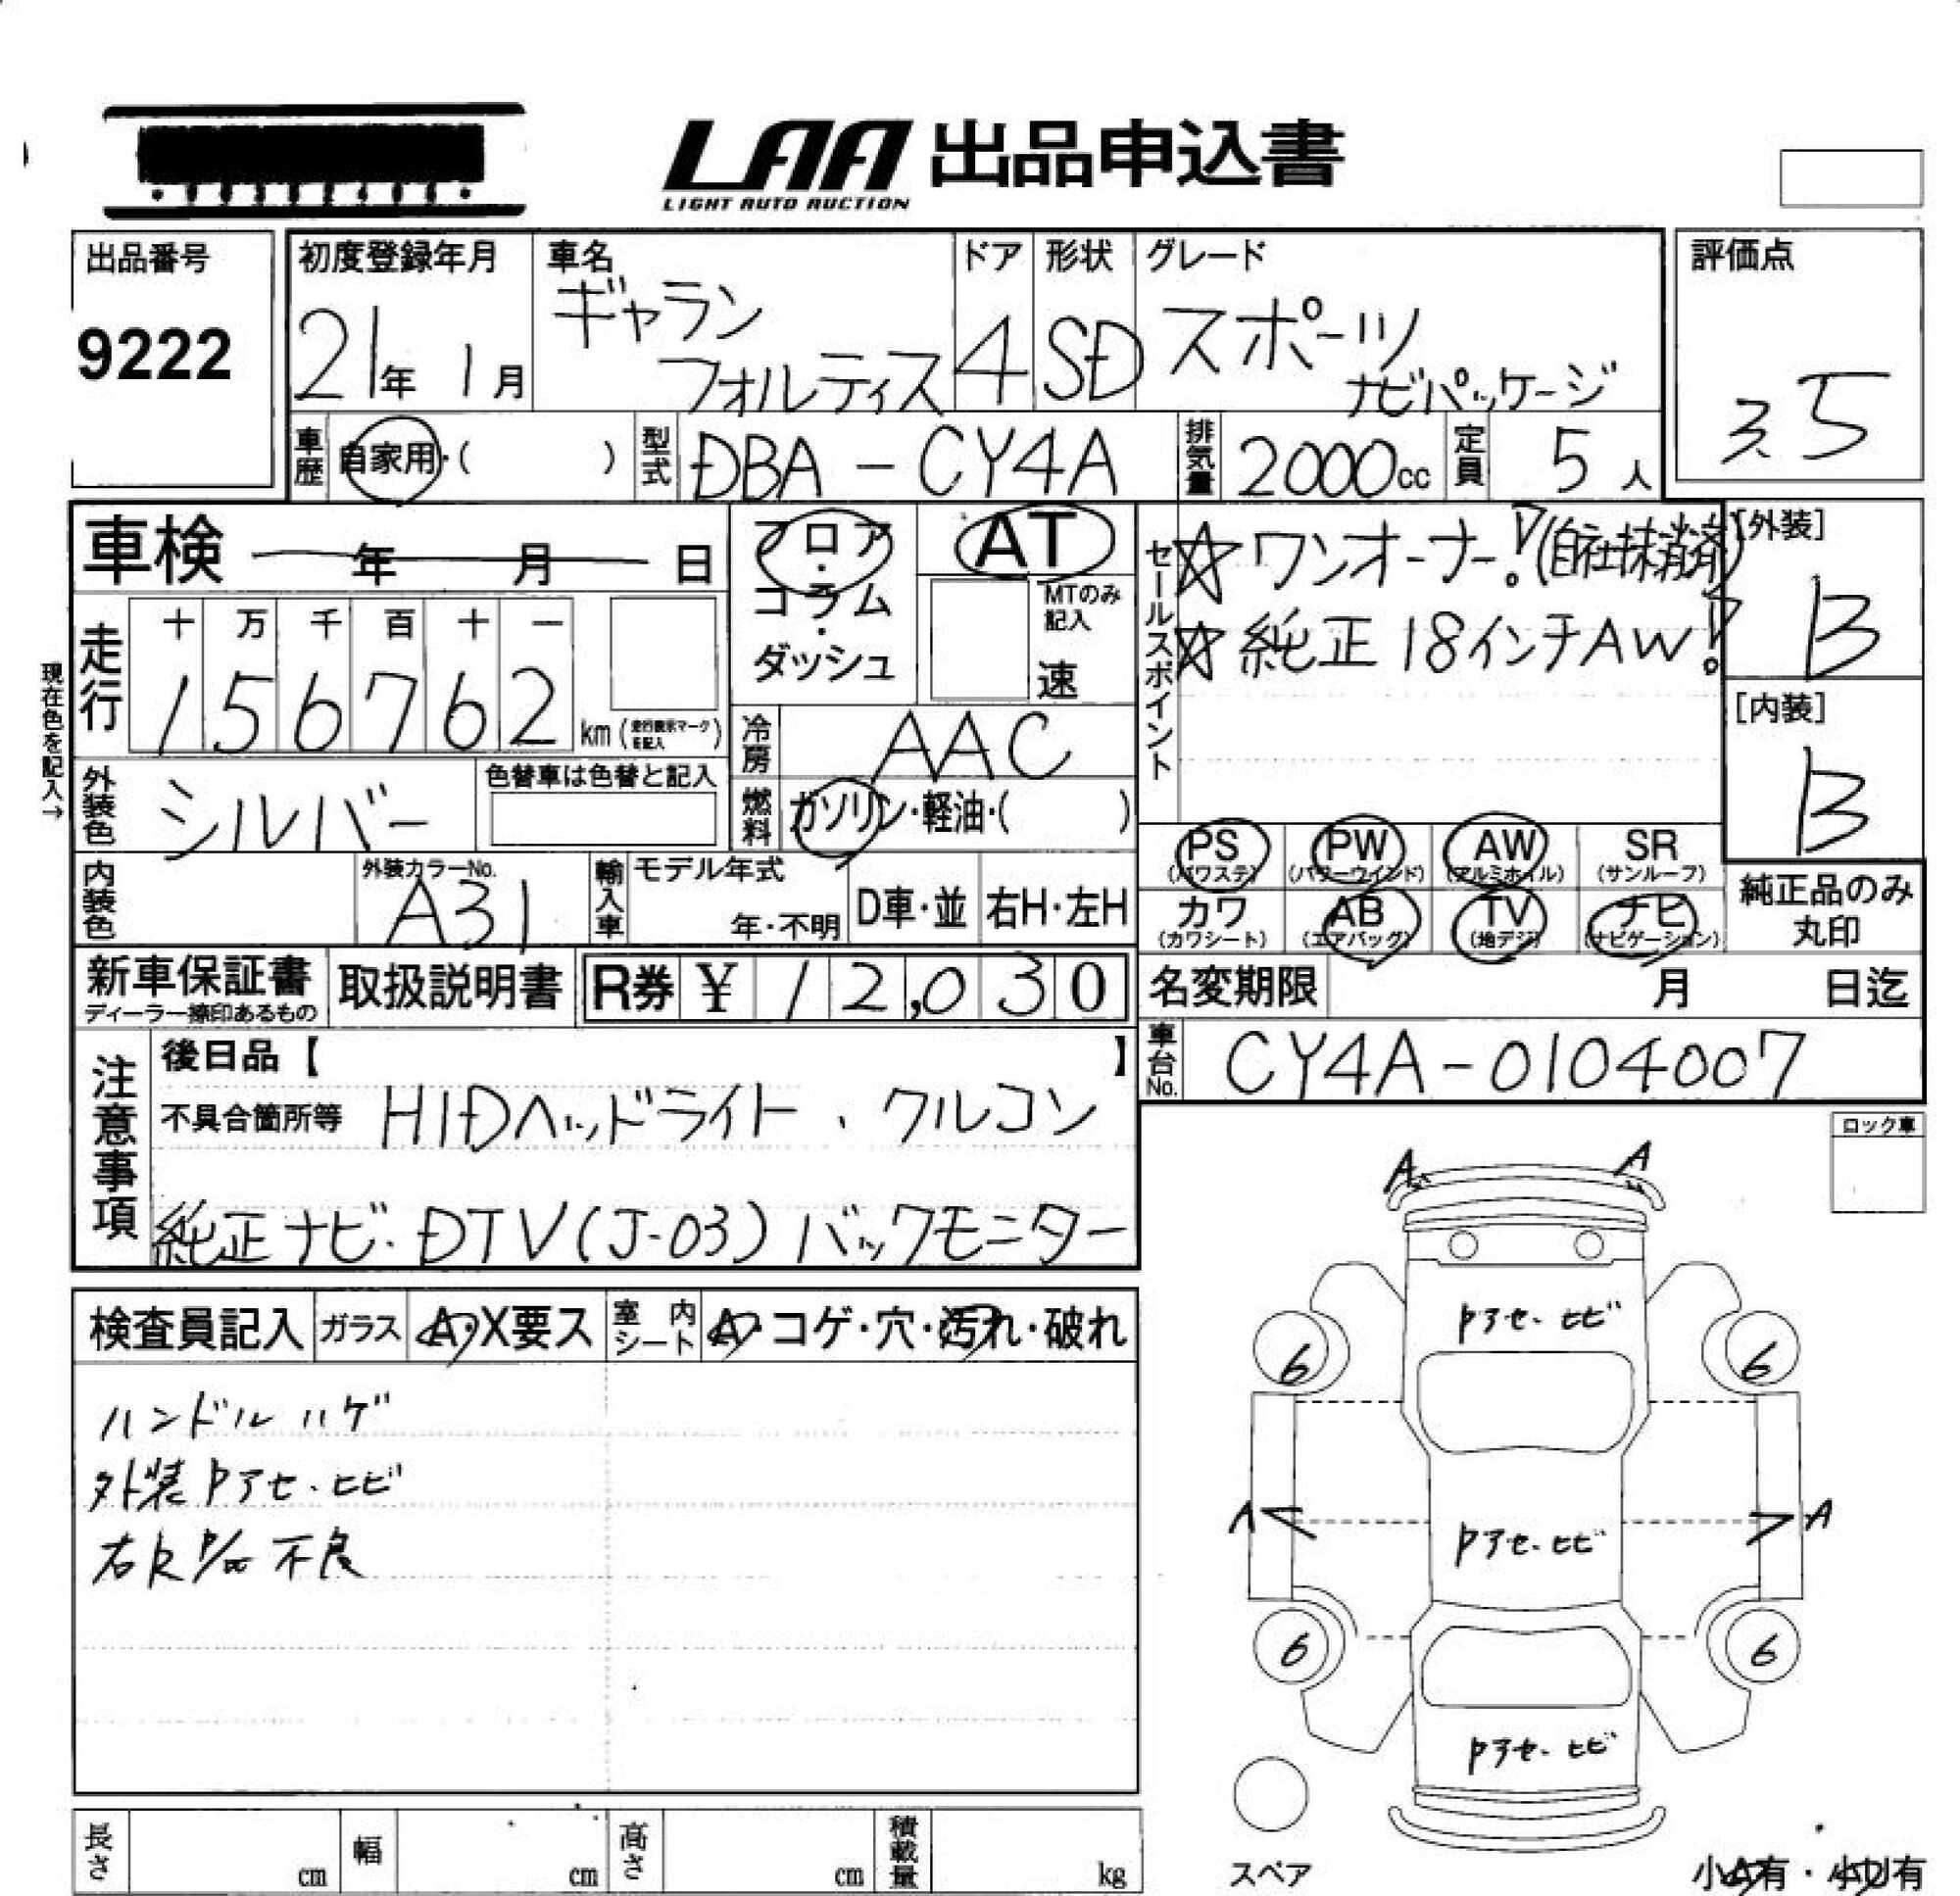 LAA 出品申込書
LIGHT AUTO AUCTION
出品番号
9222
初度登録年月
21年 1月
車名
ギャラン
フォルティス
ドア
4
形状
SD
グレード
スポーツ
ナビパッケージ
評価点
3.5
車歴
自家用・( )
型式
DBA-CY4A
排気量
2000cc
定員
5人
車検 年 月 日
フロア・コラム・ダッシュ
AT
MTのみ記入
速
セールスポイント
☆ワンオーナー!(自社抹消済)
☆純正18インチAW!
[外装]
B
[内装]
B
現在色を記入→
走行
十 万 千 百 十 一
1 5 6 7 6 2 km (走行表示マークを記入)
冷房
AAC
外装色
シルバー
色替車は色替と記入
燃料
ガソリン・軽油・( )
内装色
外装カラーNo.
A31
輸入車
モデル年式
年・不明
D車・並
右H・左H
PS (パワステ)
PW (パワーウインド)
AW (アルミホイル)
SR (サンルーフ)
カワ (カワシート)
AB (エアバッグ)
TV (地デジ)
ナビ (ナビゲーション)
純正品のみ丸印
新車保証書
ディーラー捺印あるもの
取扱説明書
R券 ¥ 12,030
名変期限 月 日迄
車台No.
CY4A-0104007
注意事項
後日品【 】
不具合箇所等 HIDヘッドライト、クルコン
純正ナビ・DTV(J-03)バックモニター
ロック車
検査員記入
ガラス A・X要ス
室内シート A・コゲ・穴・汚れ・破れ
ハンドルハゲ
外装 アセ・ヒビ
右R 不良
A A
アセ・ヒビ
6 6
アセ・ヒビ
A A
6 6
アセ・ヒビ
スペア
小A有・小U有
長さ cm
幅 cm
高さ cm
積載量 kg